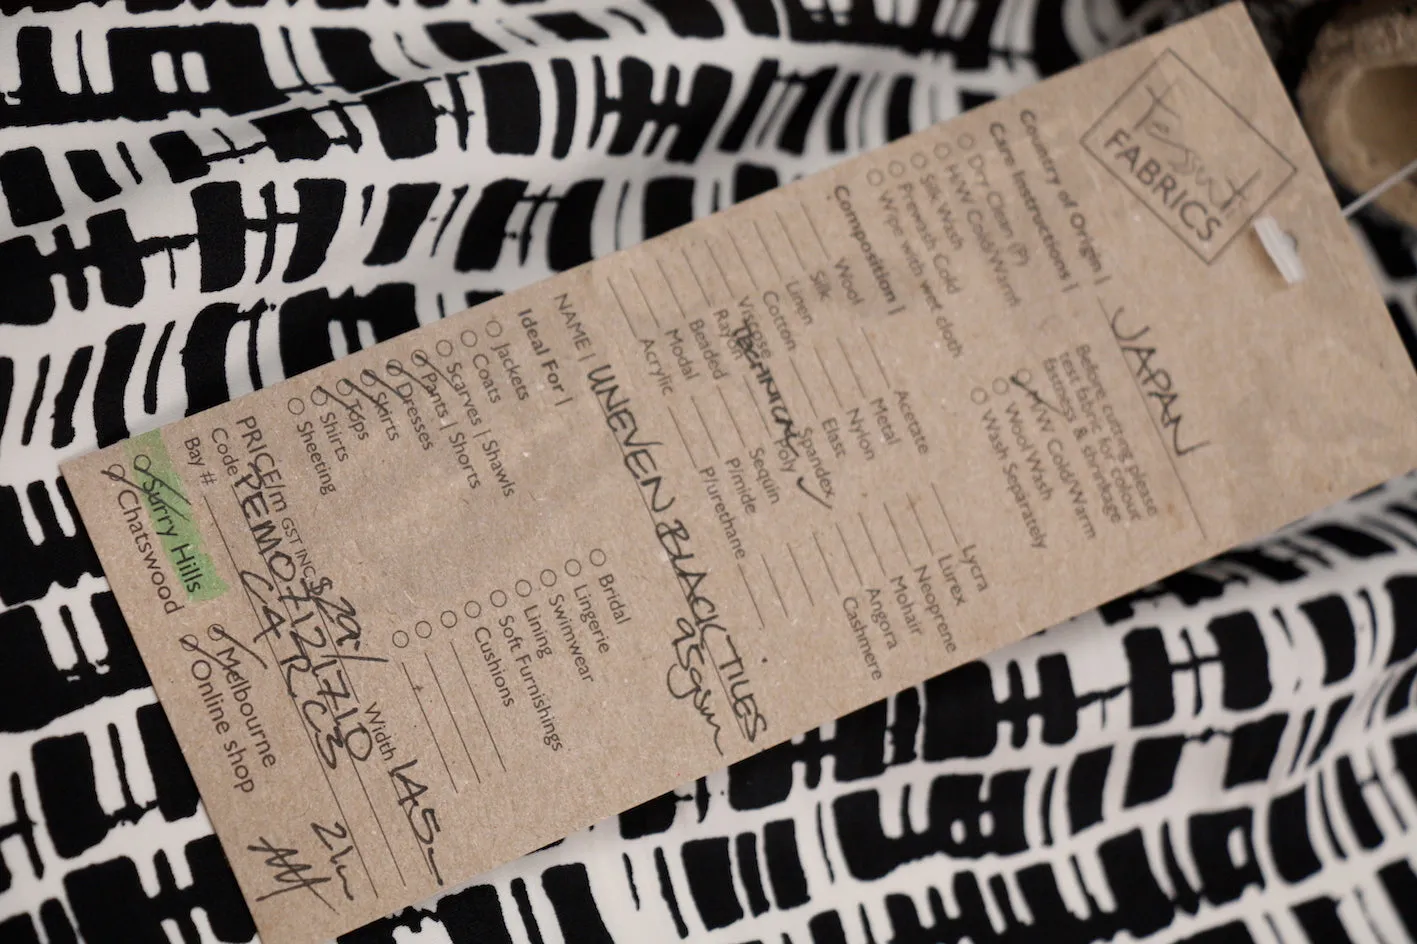 tessuti
FABRICS
Country of Origin | JAPAN
Care Instructions |
Dry Clean (P)
H/W Cold/Warm
Silk Wash
Prewash Cold
Wipe with wet cloth
Before cutting please
test fabric for colour
fastness & shrinkage
H/W Cold/Warm
Wool/Wash
Wash Separately
Composition |
Wool
Silk
Linen
Cotton
Viscose
Rayon
Beaded
Modal
Acrylic
TECHNICAL
Acetate
Metal
Nylon
Elast
Spandex
Poly
Sequin
P/imide
P/urethane
Lycra
Lurex
Neoprene
Mohair
Angora
Cashmere
NAME | UNEVEN BLACK TILES
95gsm
Ideal For |
Jackets
Coats
Scarves | Shawls
Pants | Shorts
Dresses
Skirts
Tops
Shirts
Sheeting
Bridal
Lingerie
Swimwear
Lining
Soft Furnishings
Cushions
PRICE/m GST INC $29/ Width 145
Code PEMO712171D
Bay # C4 RC3 21m
Surry Hills
Chatswood
Melbourne
Online shop